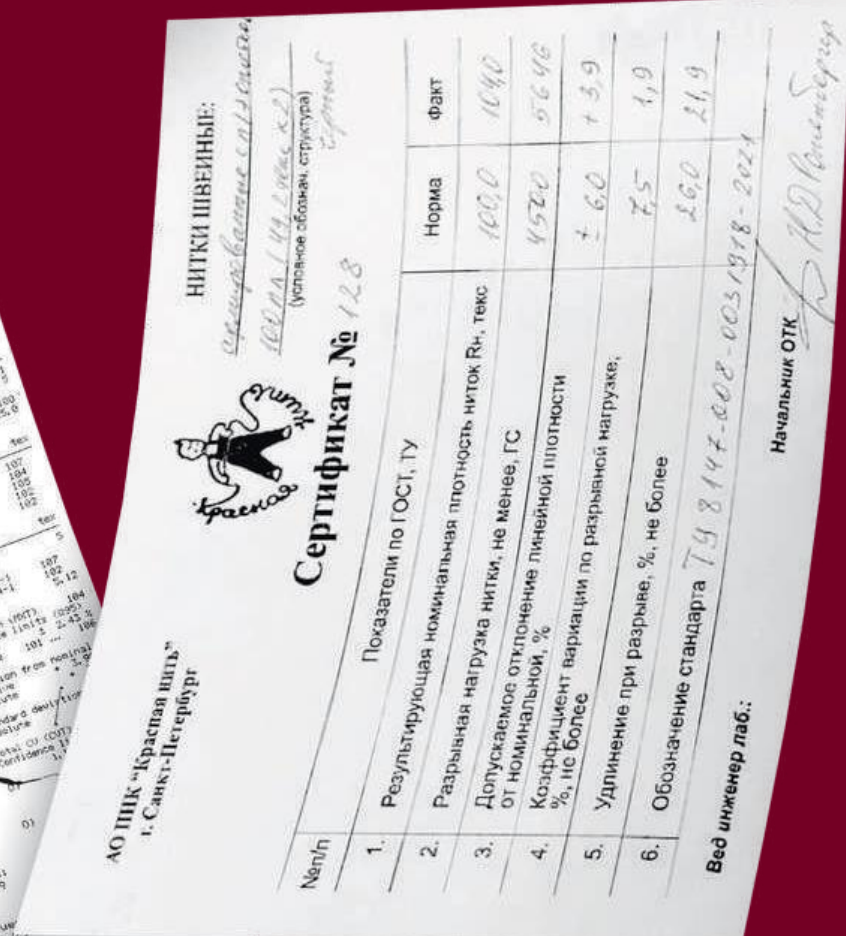 АО ПНК "Красная нить"
г. Санкт-Петербург
Красная нить
НИТКИ ШВЕЙНЫЕ:
армированные с п/э
100ЛЛ (49,2 текс х 2)
(условное обознач. структура)
чёрный
Сертификат № 128
№п/п Показатели по ГОСТ, ТУ Норма Факт
1. Результирующая номинальная плотность ниток Rн, текс 100,0 104,0
2. Разрывная нагрузка нитки, не менее, ГС 4500 5646
3. Допускаемое отклонение линейной плотности
от номинальной, % ± 6,0 +3,9
4. Коэффициент вариации по разрывной нагрузке,
%, не более 7,5 1,9
5. Удлинение при разрыве, %, не более 26,0 21,9
6. Обозначение стандарта ТУ 8147-008-0031918-2021
Вед инженер лаб.:
Начальник ОТК
tex
107
104
105
102
102
tex
5
107
102
5.12
104
limits (Q95)
± 2.43 %
101 ... 106
from nominal